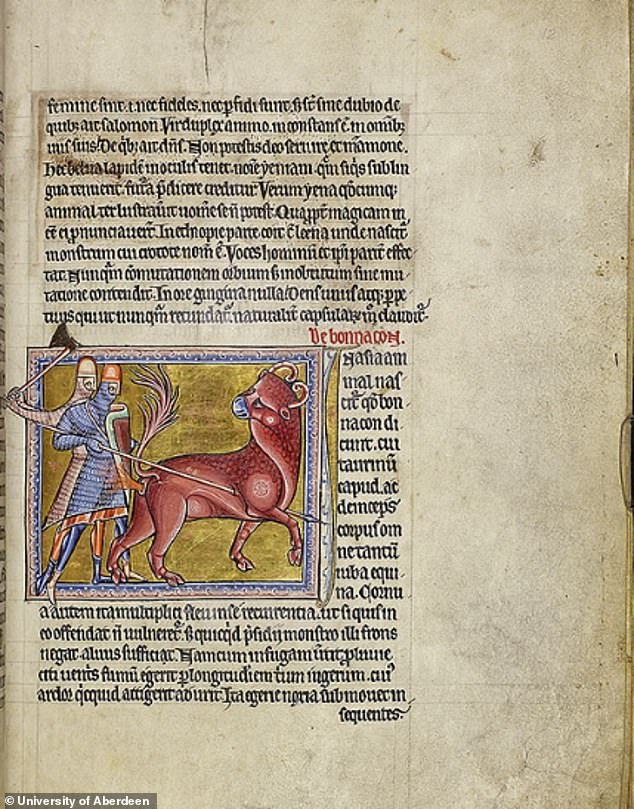 femine sunt .i. nec fideles. nec ꝑfidi sunt. s; st̄ sine dubio de
quib; ait salomon. Vir duplex animo. inconstans ē in omīb;
uiis suis. De qͥb; ait dn̄s. Non potestis deo seruire et mamone.
Hec belua lapidē in oculis tenet. noīe yeniam. quē siqͥs sub lin
gua tenuerit. futura p̄dicere creditur. Verum yena qͦdcumq;
animal ter lustrauerit mouere se ñ potest. Quapropt̄ magicam in
ēē ei pronunciauer̄t. In ethiopie parte coit cū leena unde nascit̄
monstrum cui crocote nom̄ ē. Voces hominū et ip̄a parit̄ effec
tat. Nunqͣm cōmutationem orbium s; in obtutum sine mu
tatione contendit. In ore gingiua nulla. Dens unus atq; ꝑpe
tuus qui ut nunqͣm retundat̄. naturalit̄ capsularū m̊ claudit̄.
De bonnacon.
In asia ani
mal nas
cit̄ qͦd bon
nacon di
cunt. cui
taurinū
capud. ac
deinceps
corpus om
ne tantū
iuba equi
na. Cornu
a autem ita multiplici flexu in se recurrentia. ut si quis in
eo offendat ñ uulneret̄. S; quicqͥd p̄sidii monstro illi frons
negat. aluus sufficiat. Nam cum in fugam ūtit̄ proluuie
citi uent̄s fimum egerit ꝑ longitudinem triū iugerum. cui̾
ardor qͥcquid attigerit adurit. Ita egerie noxia submouet in
sequentes.
©University of Aberdeen